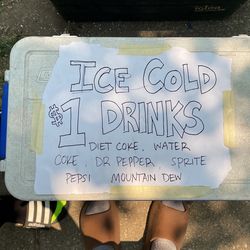 ICE COLD
$1 DRINKS
DIET COKE, WATER
COKE, DR PEPPER SPRITE
PEPSI MOUNTAIN DEW